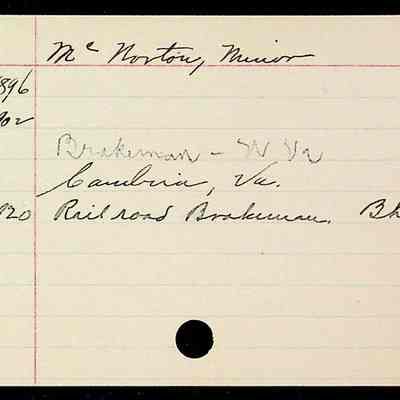 Mc Norton, Minor
896
902
Brakeman - W Va
Cambria, Va.
920 Railroad Brakeman. Bh